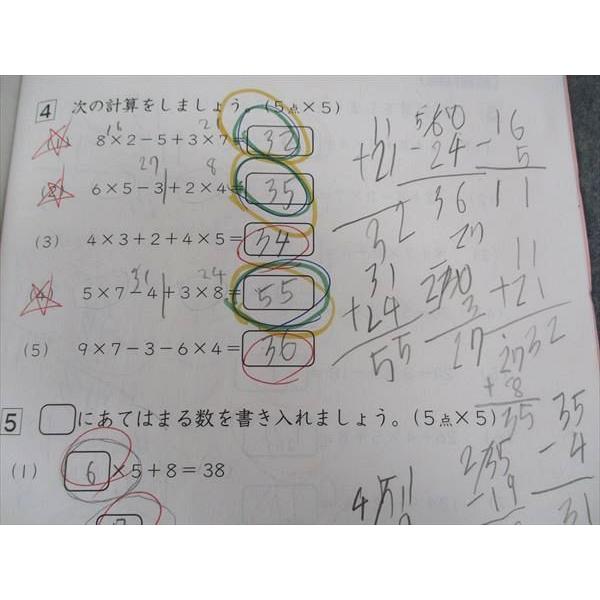 4 次の計算をしましょう。(5点×5)
16 21
(1) 8×2-5+3×7= 32
27 8
(2) 6×5-3+2×4= 35
(3) 4×3+2+4×5= 34
31 24
(4) 5×7-4+3×8= 55
(5) 9×7-3-6×4= 36
5 □にあてはまる数を書き入れましょう。(5点×5)
(1) 6 ×5+8=38
11
+21
32
60
-24
36
16
-5
11
31
+24
55
30
3
27
11
+21
32
27
+8
35
35
-4
31
35
-19